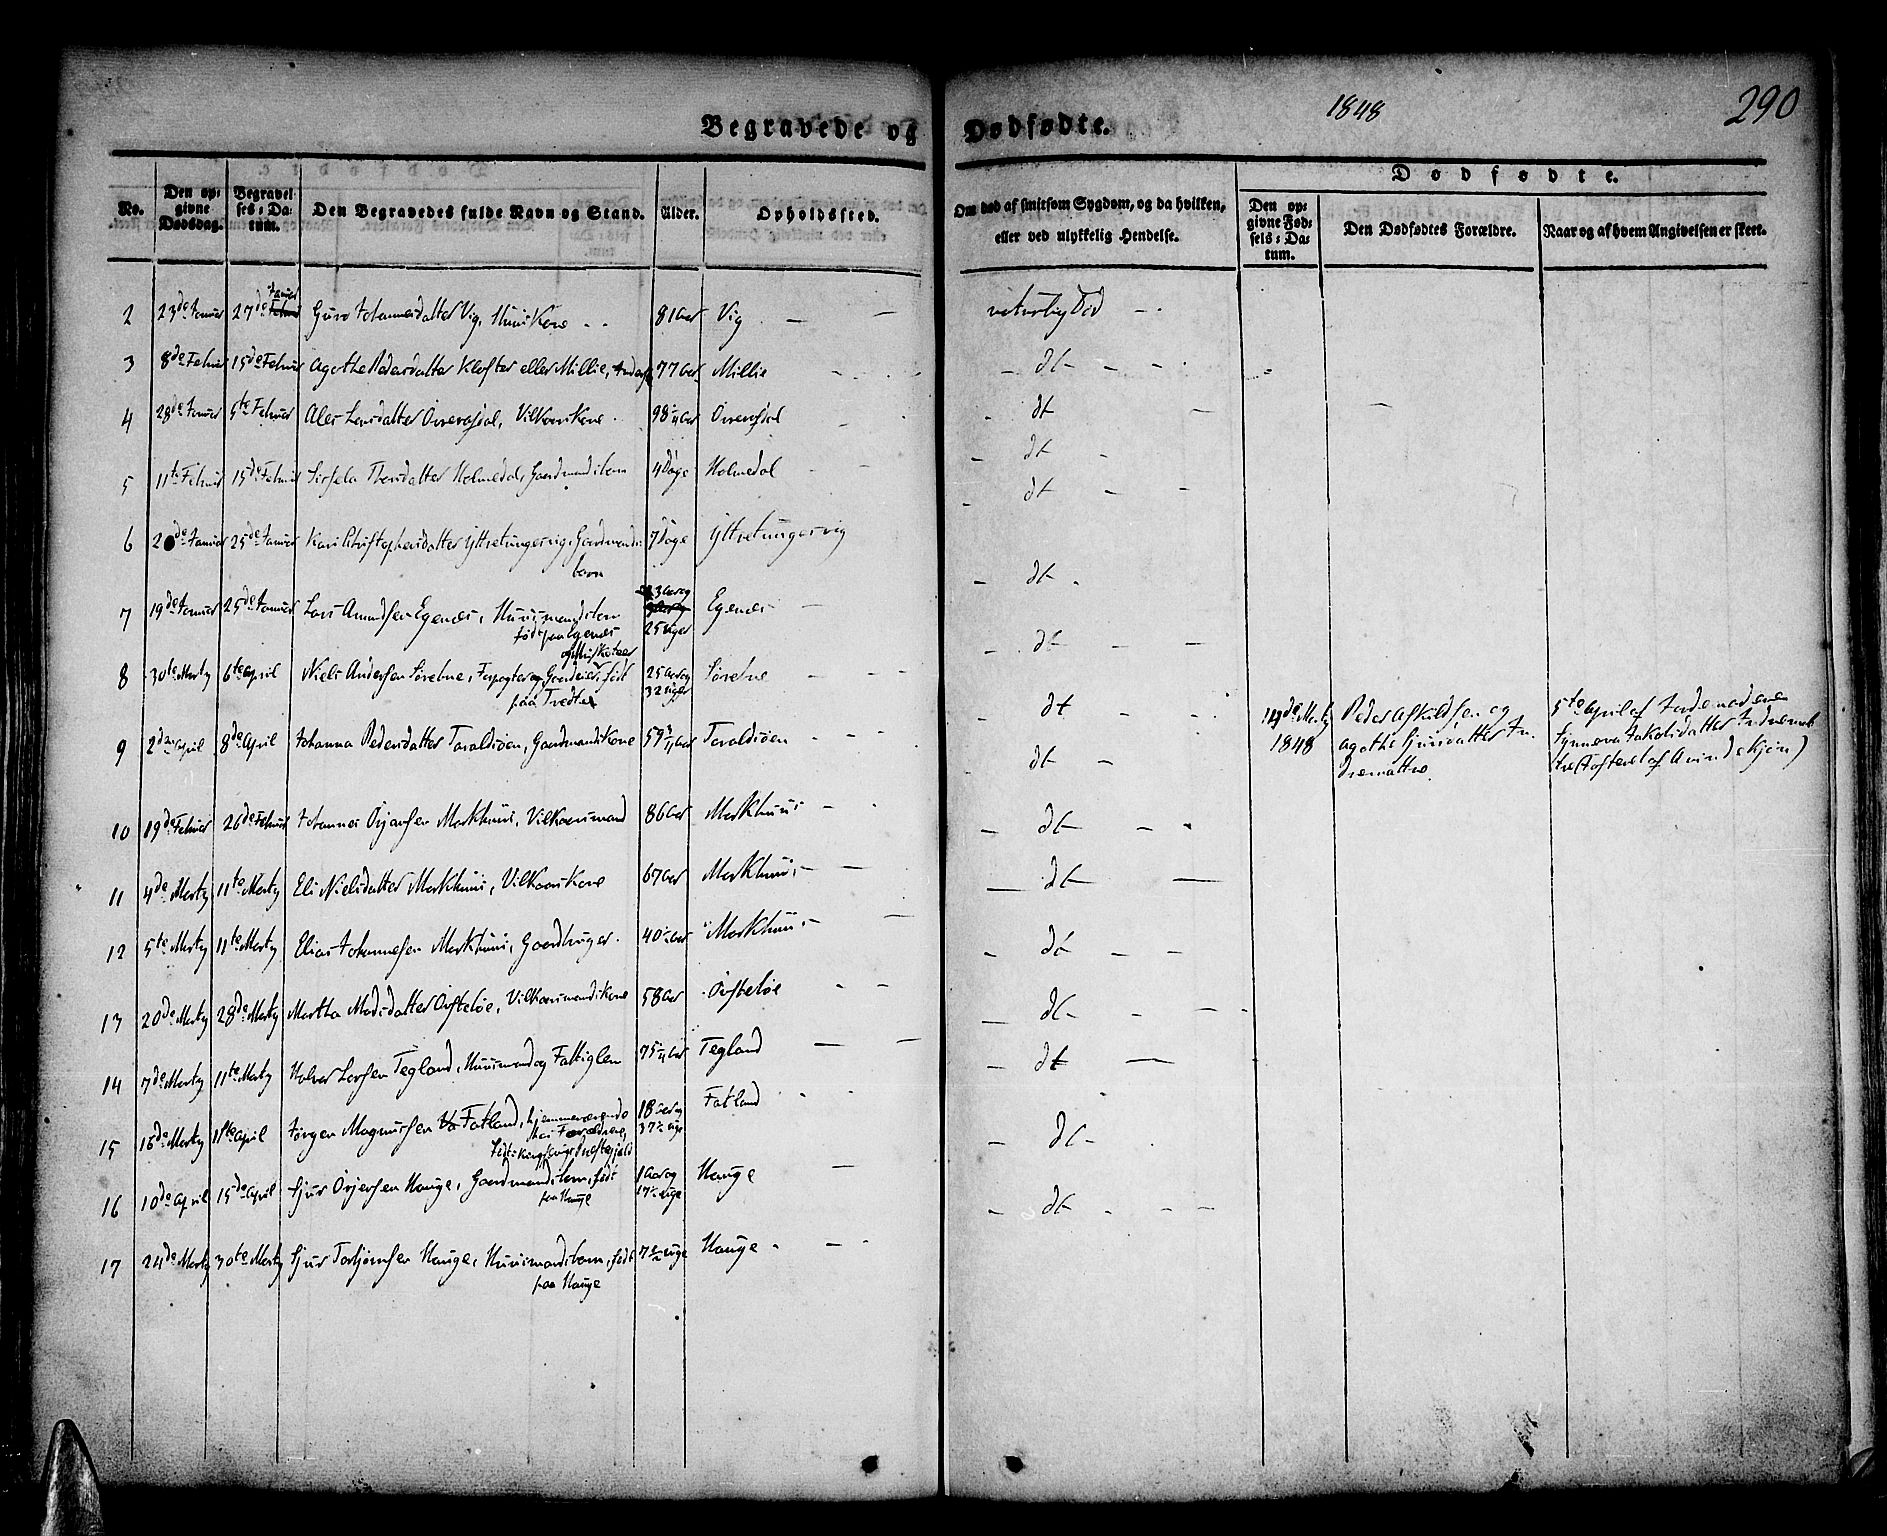 1848
290
Begravede og Dødfødte.
No.
Den op-
givne
Dødsdag.
Begravel-
ses-Da-
tum.
Den Begravedes fulde Navn og Stand.
Alder.
Opholdssted.
Om død af smitsom Sygdom, og da hvilken,
eller ved ulykkelig Hendelse.
Dødfødte.
Den op-
givne Fød-
sels-Da-
tum.
Den Dødfødtes Forældre.
Naar og af hvem Angivelsen er skeet.
2 23de Januar 27de Januar Guro Johannesdatter Vig, Huuskone 81 Aar Vig naturlig Død
3 8de Februar 15de Februar Agathe Pedersdatter Kloster eller Millie, 77 Aar Millie dt
4 28de Januar 5te Februar Ales Larsdatter, Vilkaarskone 98 Aar dt
5 11te Februar 15de Februar Holmedal, Gaardmandsbarn 4 Dage Holmedal dt
6 25de Januar Kari Christophersdatter Yttretungesvig, Gaardmands- 7 Dage Yttretungesvig dt
barn
7 19de Januar 25de Januar Lars Amundsen Egenes, Huusmandsbarn 3 Aar og Egenes dt
født paa Egenes 25 uger
8 30te Marty 6te April Niels Andersen Sørebøe, Forpagter og Gaardeier, født 25 Aar og Sørebøe dt
paa Tredtei 32 uger
9 2den April 8de April Johanna Pedersdatter Taraldsøen, Gaardmandskone 57 Aar Taraldsøen dt
14de Marty
1848
Peder Askildsen og
Agathe Sjursdatter In-
dremattre
5te April af Jordemoderen
Synneva Jakobsdatter Indremat-
tre
10 19de Februar 26de Februar Johannes Ørjansen Markhuus, Vilkaarsmand 86 Aar Markhuus dt
11 4de Marty 11te Marty Eli Nielsdatter Markhuus, Vilkaarskone 67 Aar Markhuus dt
12 5te Marty 11te Marty Elias Johannesen Markhuus, Gaardbruger 40 Aar Markhuus dt
13 20de Marty 28de Marty Martha Madsdatter Øisteløe, Vilkaarsmandskone 58 Aar Øisteløe dt
14 7de Marty 11te Marty Halvor Larsen Tegland, Huusmand og Fattiglem 75 Aar Tegland dt
15 18de Marty 11te April Jørgen Magnussen Fatland, hjemmeværende 18 Aar og Fatland dt
hos Forældrene,
16 10de April 15de April Sjur Ørjansen Hauge, Gaardmandsbarn, født 1 Aar og Hauge dt
paa Hauge 17 uge
17 24de Marty 30te Marty Sjur Torbjørnsen Hauge, Huusmandsbarn, født Hauge
paa Hauge